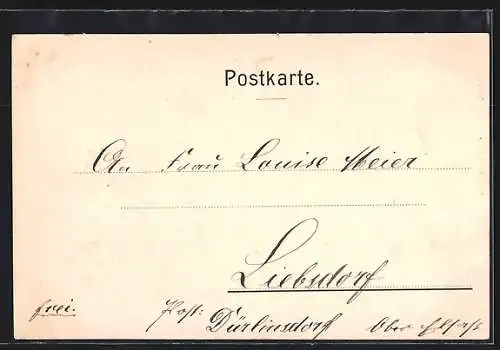 Postkarte.
An Frau Louise Meier
Liebsdorf
frei.
Post:
Dürlinsdorf
Ober Elsaß